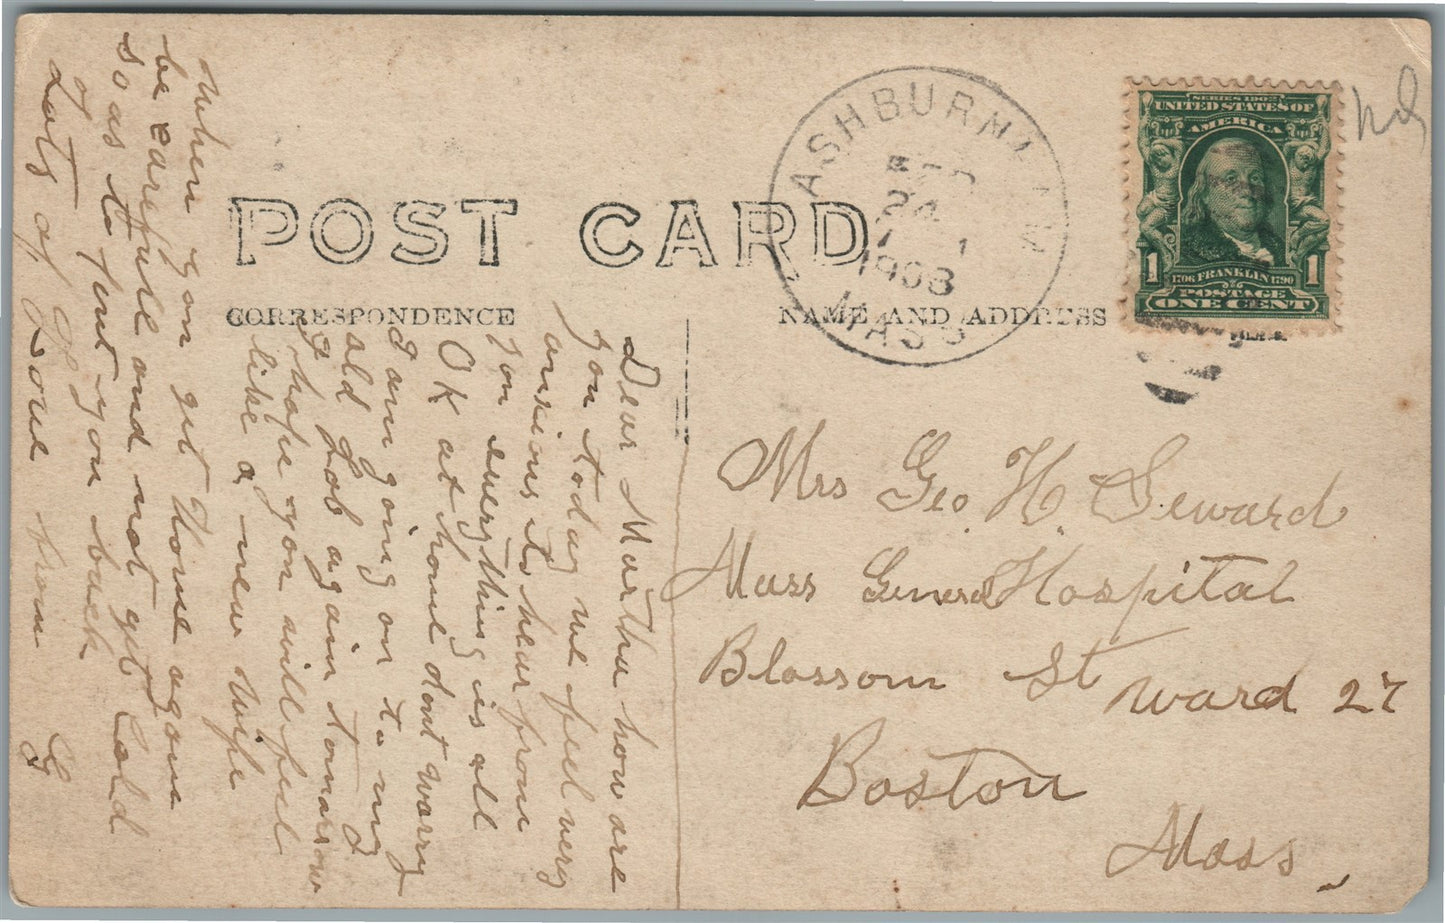 POST CARD
CORRESPONDENCE
NAME AND ADDRESS
ASHBURNHAM
FEB
24
1908
MASS
SERIES 1902
UNITED STATES OF
AMERICA
1
1706 FRANKLIN 1790
1
POSTAGE
ONE CENT
Dear Martha how are
you today we feel very
anxious to hear from
you everything is all
OK at home dont worry
I am going on to my
old Job again tomarrow
I hope you will feel
like a new Wife
When you get Home again
be carefull and not get Cold
so as to put you back
Lots of Love from
G
Mrs Geo. H. Seward
Mass General Hospital
Blossom St Ward 27
Boston
Mass